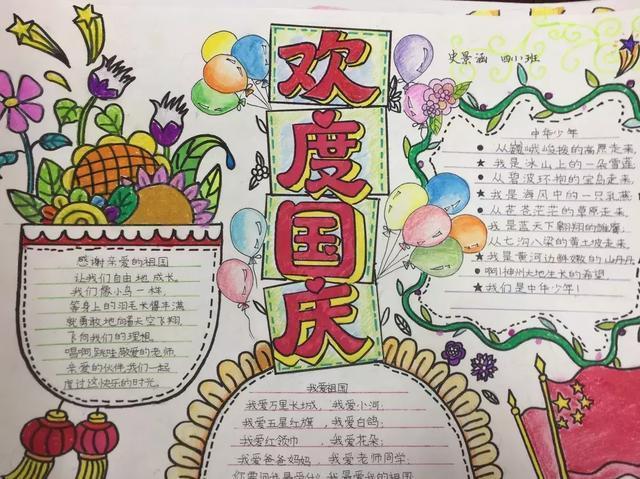 欢度国庆
史景涵 四(1)班
感谢亲爱的祖国
让我们自由地成长。
我们像小鸟一样,
等身上的羽毛长得丰满,
就勇敢地向着天空飞翔,
飞向我们的理想。
唱啊跳哇敬爱的老师,
亲爱的伙伴我们一起
度过这快乐的时光。
中华少年
从巍峨峻拔的高原走来,
我是冰山上的一朵雪莲
从碧波环抱的宝岛走来,
我是海风中的一只乳燕
从苍苍茫茫的草原走来,
我是蓝天下翱翔的雏鹰,
从七沟八梁的黄土坡走来,
我是黄河边鲜嫩的山丹丹
啊!神州大地生长的希望,
我们是中华少年!
我爱祖国
我爱万里长城,我爱小河;
我爱五星红旗,我爱白鸽;
我爱红领巾,我爱花朵;
我爱爸爸妈妈,我爱老师同学;
我最爱我的祖国